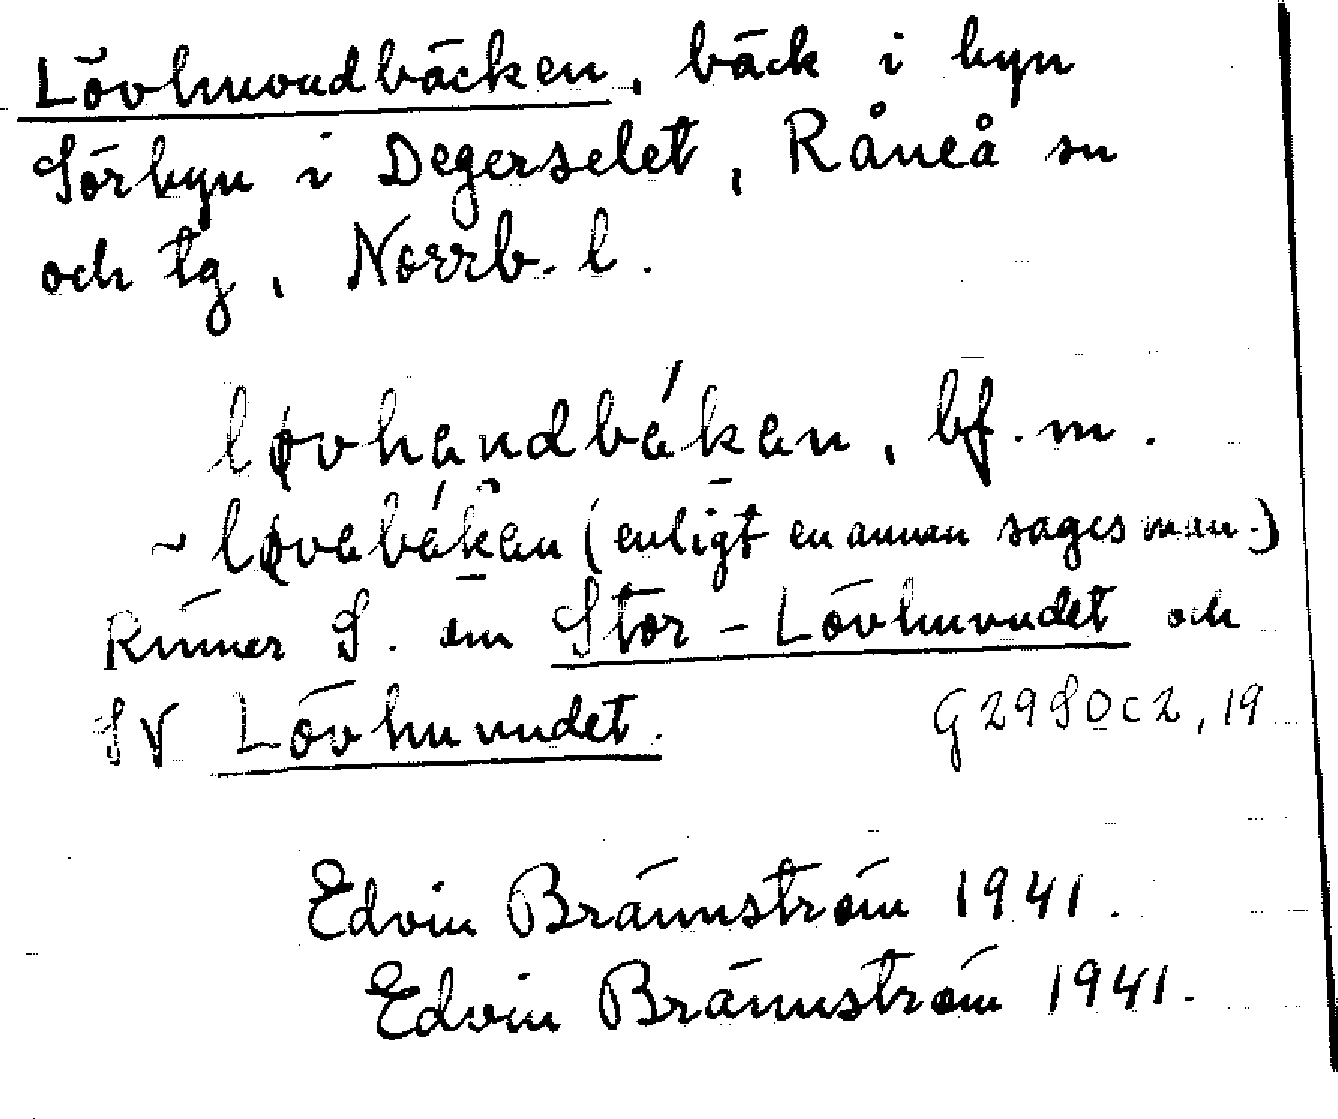 Lövhuvudbäcken, bäck i byn
Sörbyn i Degerselet, Råneå sn
och tg, Norrb. l.
løvhandbákan, bf. m.
~ løvabákan (enligt en annan sagesman.)
Rinner S. om Stor-Lövhuvudet och
SV Lövhuvudet. G2980c2, 19
Edvin Brännström 1941.
Edvin Brännström 1941.